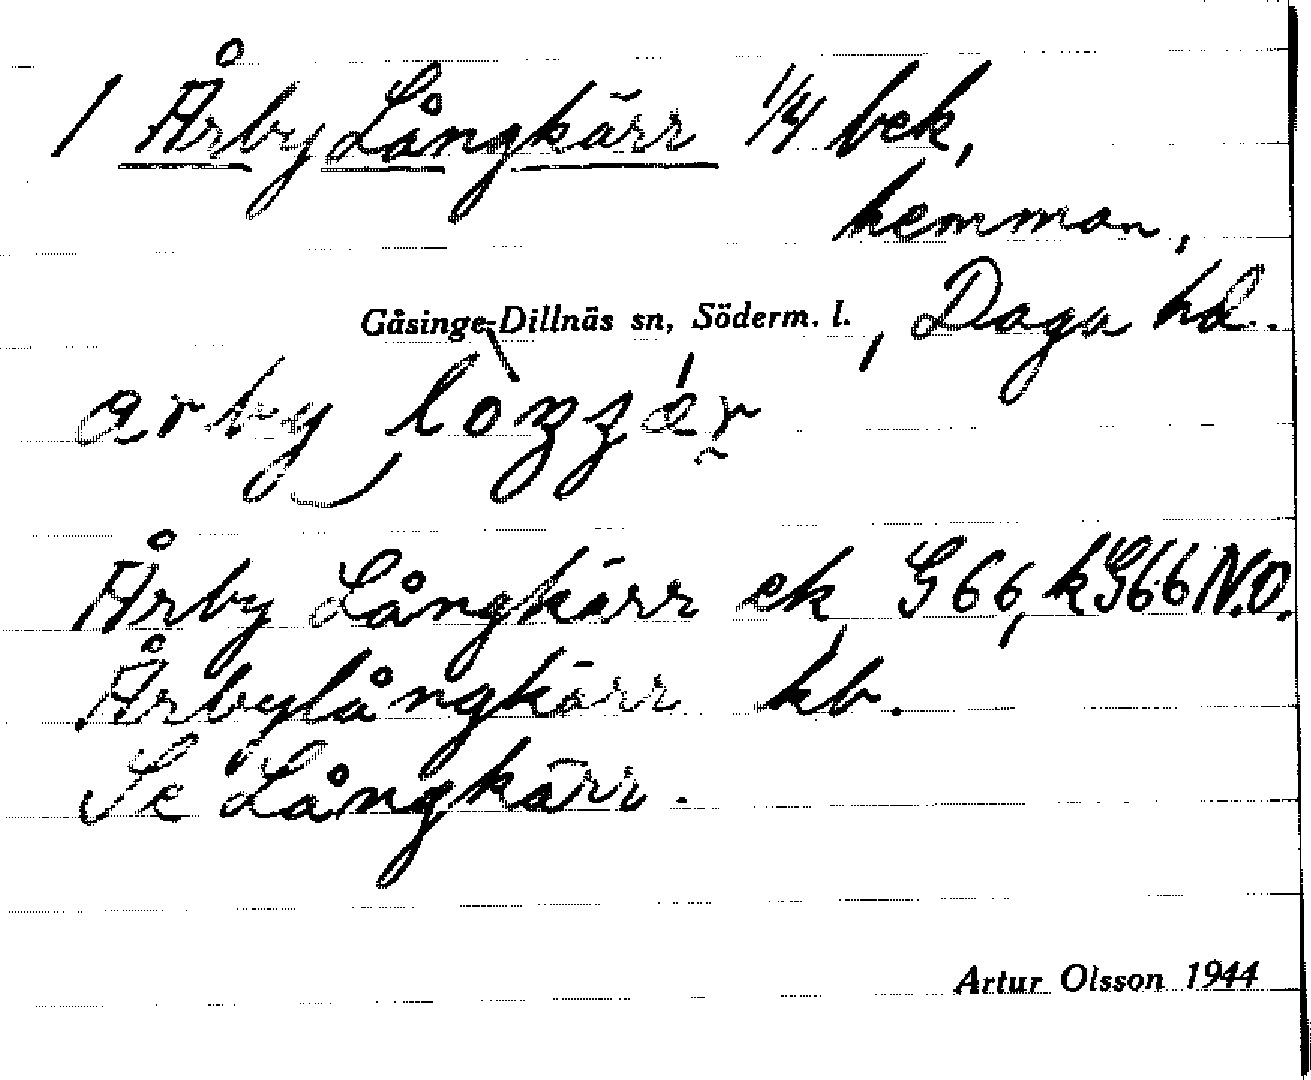 1 Årby Långkärr 1/4 bek,
hemman,
Gåsinge-Dillnäs sn, Söderm. l., Daga hd.
Årby Långkärr ek G66, k G66 N.O.
Årbylångkärr kb.
Se Långkärr.
Artur Olsson 1944